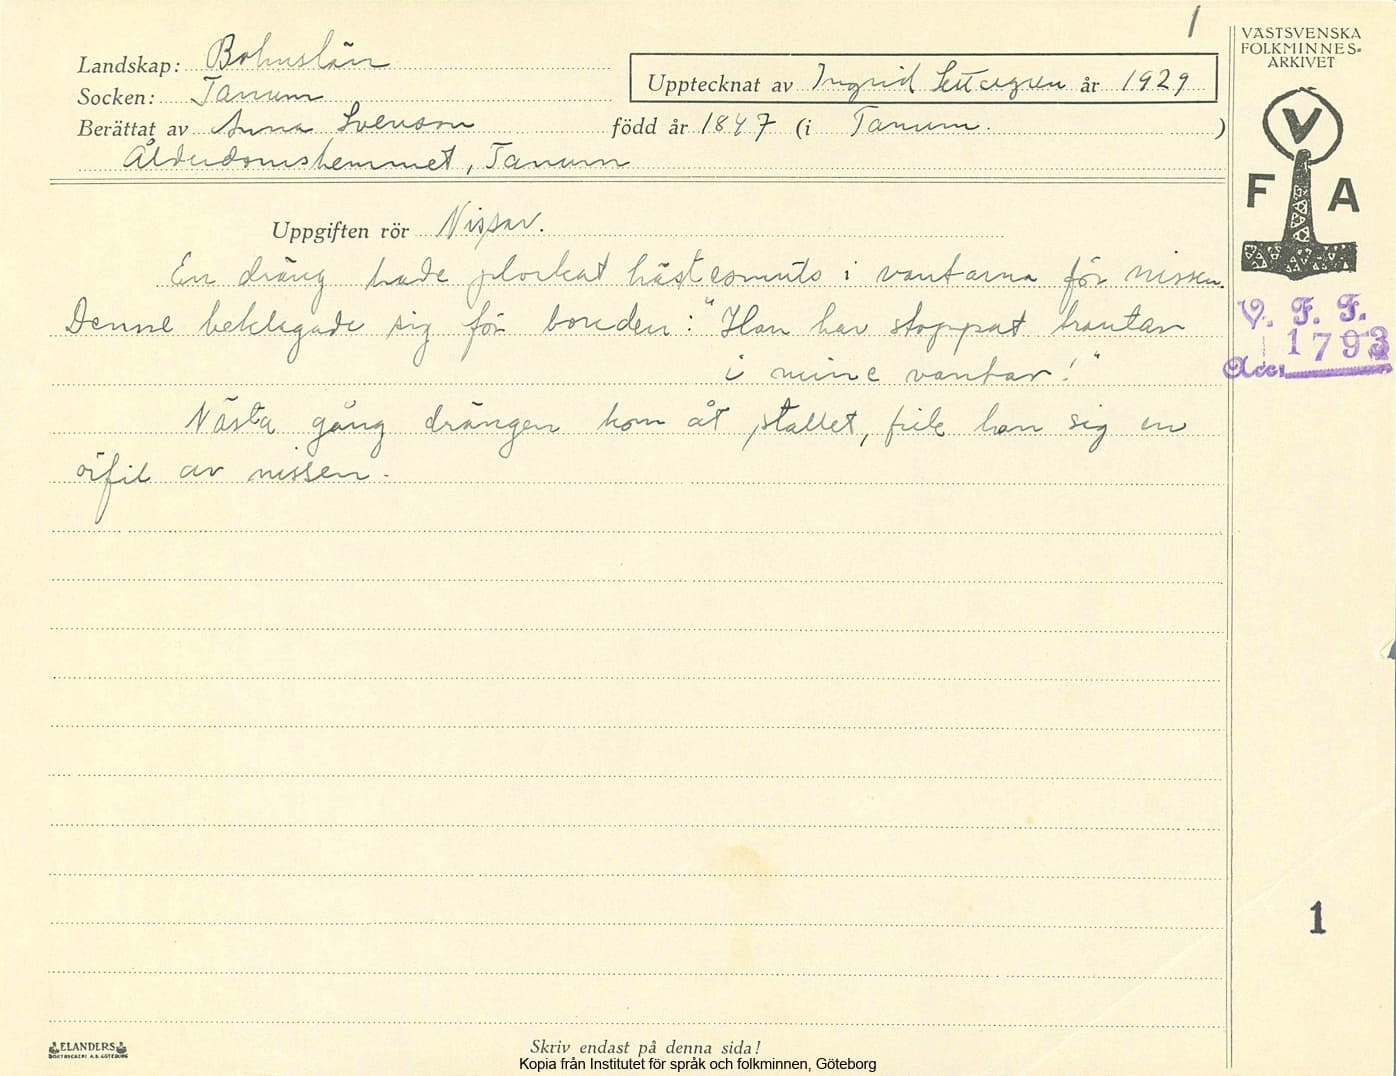 1
VÄSTSVENSKA
FOLKMINNES-
ARKIVET
V
F A
V. F. F.
1793
Acc:
Landskap: Bohuslän
Upptecknat av Ingrid år 1929
Socken: Tanum
Berättat av Anna Svenson född år 1847 (i Tanum. )
Ålderdomshemmet, Tanum
Uppgiften rör Nissar.
En dräng hade plockat hästcomuts i vantarna för nissen.
Denne beklagade sig för bonden: "Han har stoppat hantar
i mine vantar!"
Nästa gång drängen kom åt stallet, fick han sig en
örfil av nissen.
1
ELANDERS
BOKTRYCKERI A.B. GÖTEBORG
Skriv endast på denna sida!
Kopia från Institutet för språk och folkminnen, Göteborg